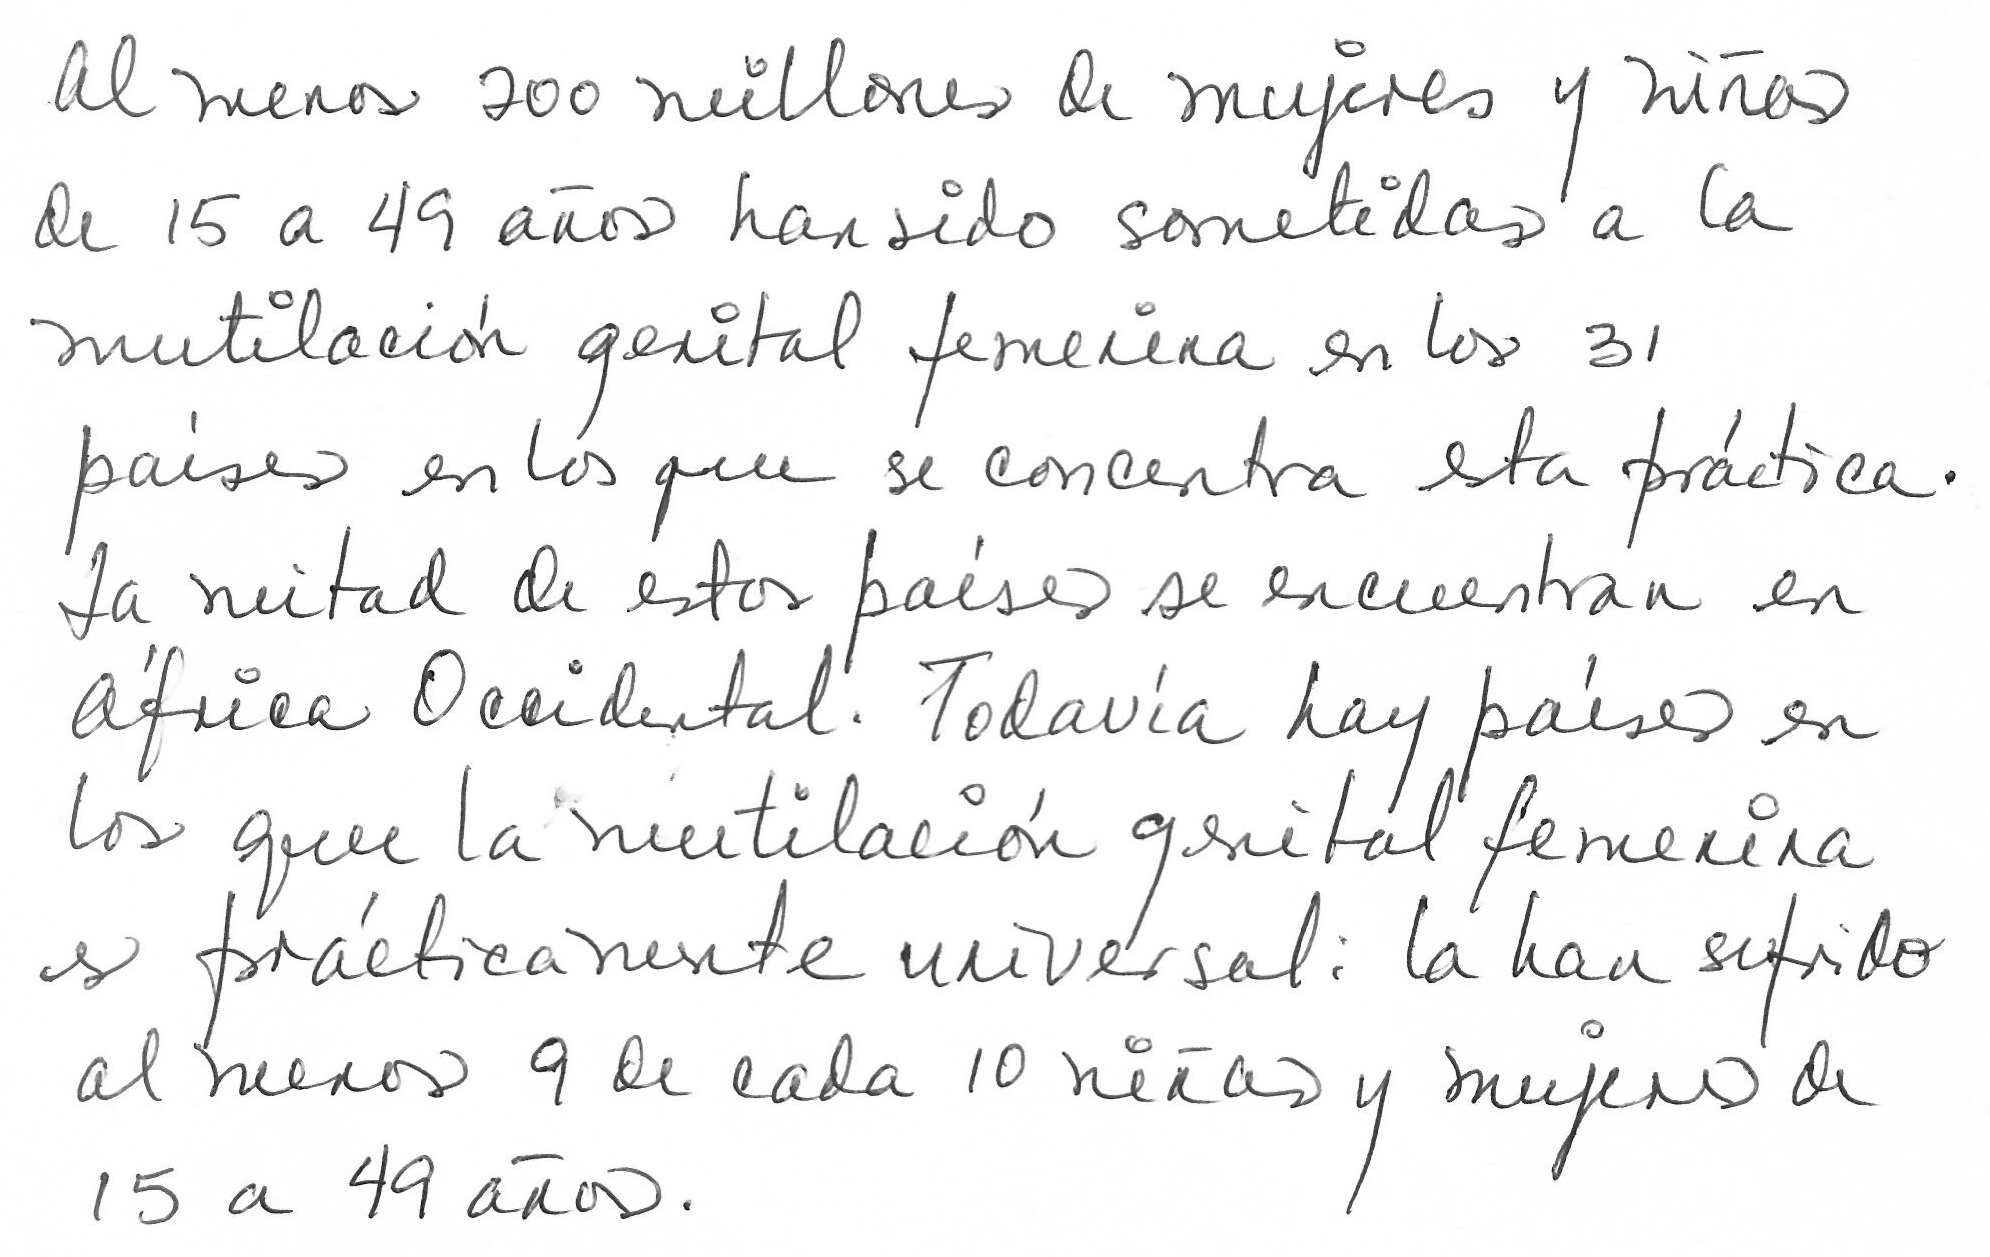 Al menos 200 millones de mujeres y niñas
de 15 a 49 años han sido sometidas a la
mutilación genital femenina en los 31
países en los que se concentra esta práctica.
La mitad de estos países se encuentran en
África Occidental. Todavía hay países en
los que la mutilación genital femenina
es prácticamente universal: la han sufrido
al menos 9 de cada 10 niñas y mujeres de
15 a 49 años.